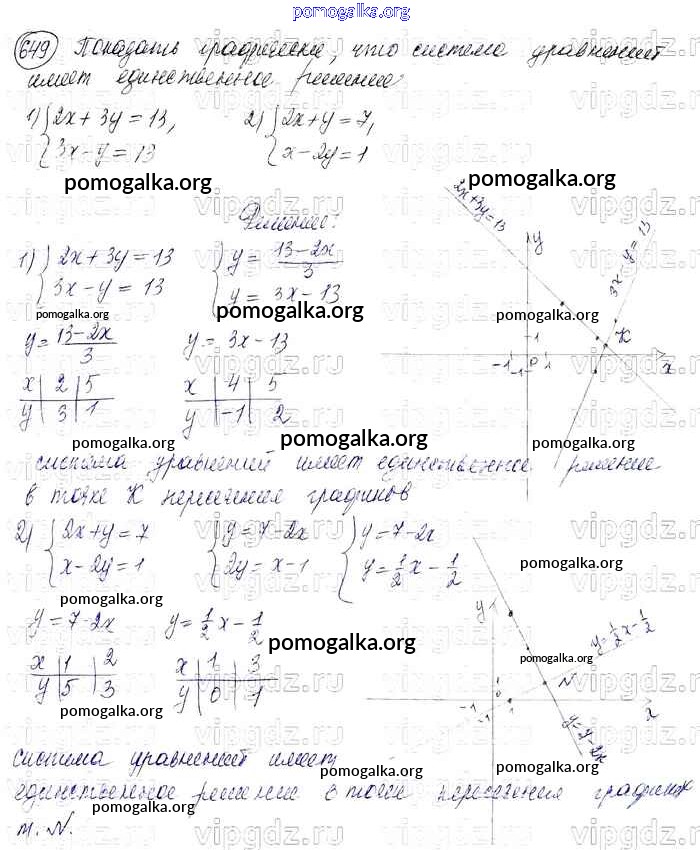 pomogalka.org
649 Показать графически, что система уравнений
имеет единственное решение
1) { 2x + 3y = 13, 2) { 2x + y = 7,
3x - y = 13 x - 2y = 1
pomogalka.org pomogalka.org
Решение:
1) { 2x + 3y = 13 { y = 13 - 2x / 3
3x - y = 13 y = 3x - 13
pomogalka.org pomogalka.org pomogalka.org
y = 13 - 2x / 3 y = 3x - 13
x | 2 | 5 x | 4 | 5
y | 3 | 1 y | -1 | 2
2x + 3y = 13
y
3x - y = 13
1
K
-1 0 1 x
-1
pomogalka.org pomogalka.org pomogalka.org
система уравнений имеет единственное решение
в точке K пересечения графиков
2) { 2x + y = 7 { y = 7 - 2x { y = 7 - 2x
x - 2y = 1 2y = x - 1 y = 1/2 x - 1/2
pomogalka.org pomogalka.org
y = 7 - 2x y = 1/2 x - 1/2
pomogalka.org
x | 1 | 2 x | 1 | 3
y | 5 | 3 y | 0 | 1
y
y = 1/2 x - 1/2
pomogalka.org
N
0
-1 1 x
y = 7 - 2x
pomogalka.org
система уравнений имеет
pomogalka.org pomogalka.org
единственное решение в точке пересечения графиков
pomogalka.org
т. N.
vipgdz.ru